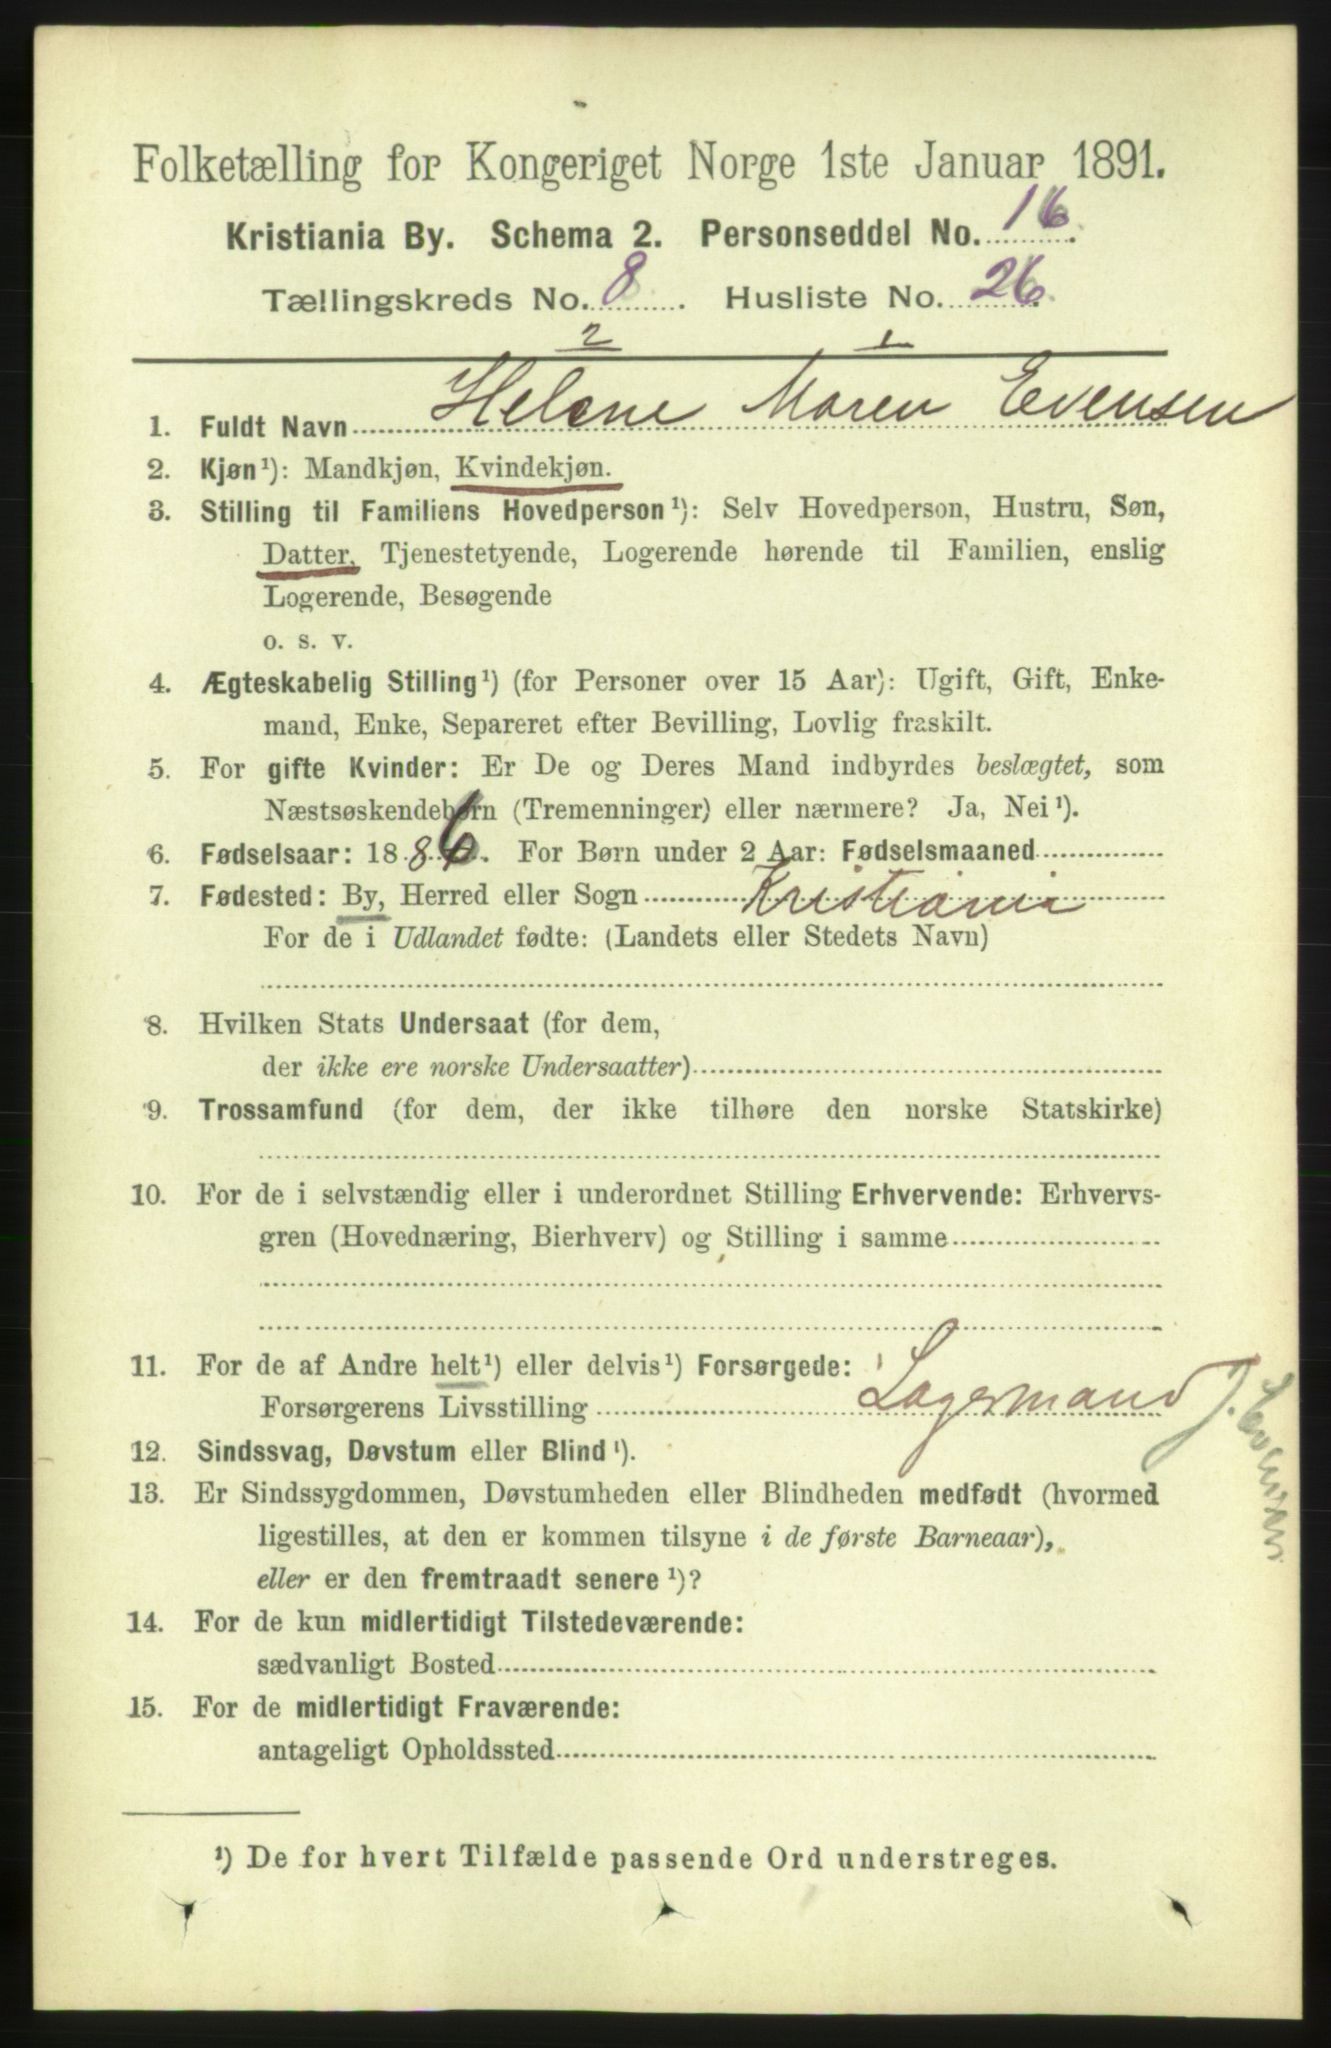 Folketælling for Kongeriget Norge 1ste Januar 1891.
Kristiania By. Schema 2. Personseddel No. 16.
Tællingskreds No. 8. Husliste No. 26.
2 1
1. Fuldt Navn Helene Maren Evensen
2. Kjøn¹): Mandkjøn, Kvindekjøn.
3. Stilling til Familiens Hovedperson¹): Selv Hovedperson, Hustru, Søn,
Datter, Tjenestetyende, Logerende hørende til Familien, enslig
Logerende, Besøgende
o. s. v.
4. Ægteskabelig Stilling¹) (for Personer over 15 Aar): Ugift, Gift, Enke-
mand, Enke, Separeret efter Bevilling, Lovlig fraskilt.
5. For gifte Kvinder: Er De og Deres Mand indbyrdes beslægtet, som
Næstsøskendebørn (Tremenninger) eller nærmere? Ja, Nei¹).
6. Fødselsaar: 1886. For Børn under 2 Aar: Fødselsmaaned
7. Fødested: By, Herred eller Sogn Kristiania
For de i Udlandet fødte: (Landets eller Stedets Navn)
8. Hvilken Stats Undersaat (for dem,
der ikke ere norske Undersaatter)
9. Trossamfund (for dem, der ikke tilhøre den norske Statskirke)
10. For de i selvstændig eller i underordnet Stilling Erhvervende: Erhvervs-
gren (Hovednæring, Bierhverv) og Stilling i samme
11. For de af Andre helt¹) eller delvis¹) Forsørgede:
Forsørgerens Livsstilling Lagermand J. Evensen
12. Sindssvag, Døvstum eller Blind¹).
13. Er Sindssygdommen, Døvstumheden eller Blindheden medfødt (hvormed
ligestilles, at den er kommen tilsyne i de første Barneaar),
eller er den fremtraadt senere¹)?
14. For de kun midlertidigt Tilstedeværende:
sædvanligt Bosted
15. For de midlertidigt Fraværende:
antageligt Opholdssted
¹) De for hvert Tilfælde passende Ord understreges.